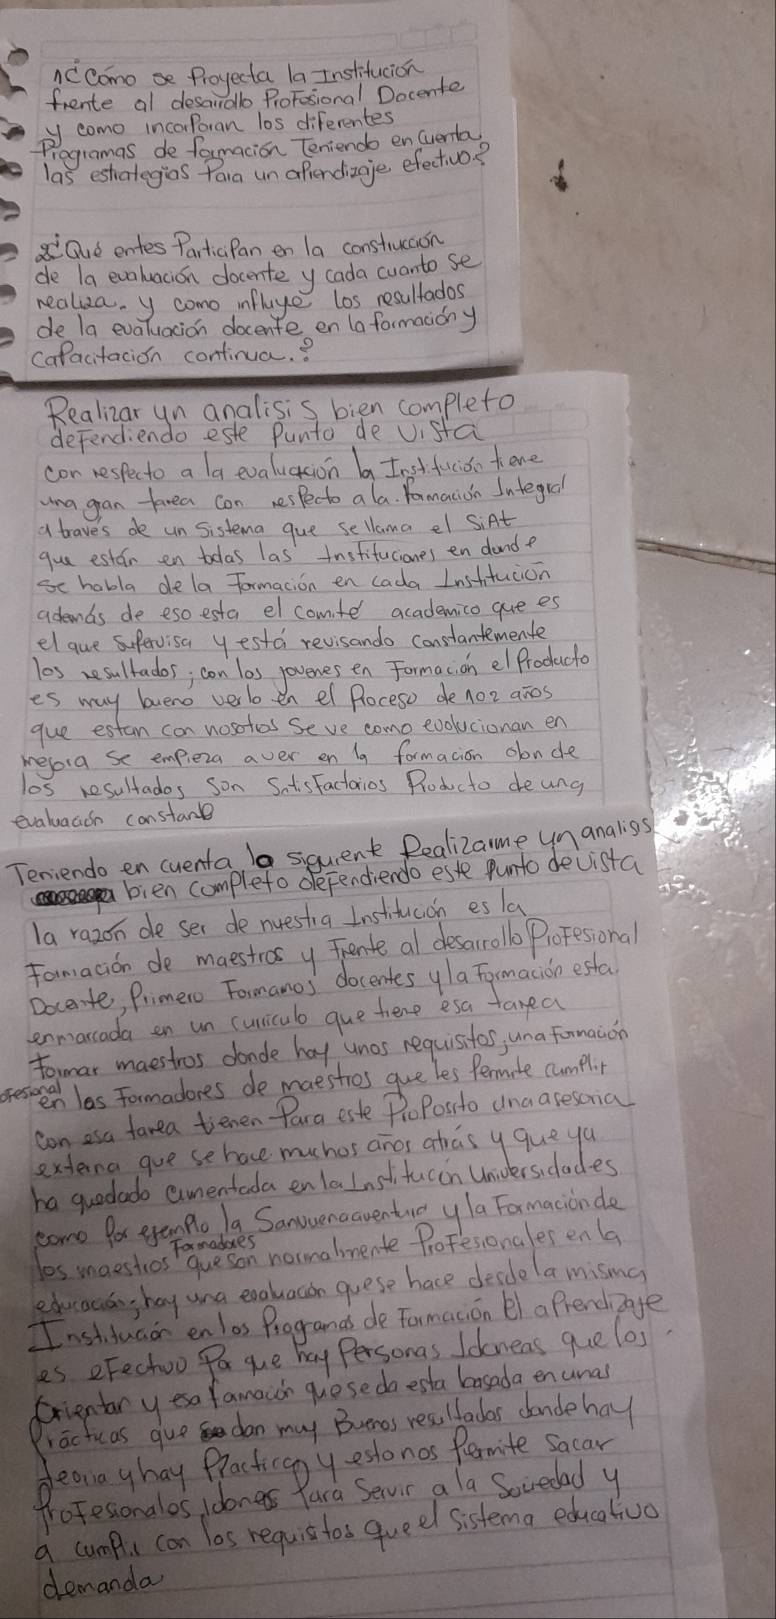 1¿Cómo se Proyecta la Institución
frente al desarrollo Profesional Docente
y como incorporan los diferentes
Programas de formación Teniendo en cuenta
las estrategias Para un aprendizaje efectivo?
2¿Qué entes Participan en la construcción
de la evaluación docente y cada cuanto se
realiza. y como influye los resultados
de la evaluación docente en la formación y
capacitación continua.?
Realizar un analisis bien completo
defendiendo este Punto de vista
con respecto a la evaluación la Institución tiene
una gran tarea con respecto a la. formación Integral
a través de un sistema que se llama el SiAt
que están en todas las Instituciones en donde
se habla de la Formación en cada Institución
además de eso esta el comité academico que es
el que supervisa y está revisando constantemente
los resultados; con los jovenes en Formacion el Producto
es muy bueno verlo en el Proceso de 1 o 2 años
que estan con nosotros Se ve como evolucionan en
mejora se empieza a ver en la formacion donde
los resultados son Satisfactorios Producto de una
evaluación constante
Teniendo en cuenta lo siguiente Realizarme un analisis
bien completo defendiendo este punto de vista
la razón de ser de nuestra Institución es la
Formación de maestros y Frente al desarrollo Profesional
Docente, Primero Formamos docentes y la Formación esta
enmarcada en un curriculo que tiene esa tarea
formar maestros donde hay unos requisitos; una Formación
ofesional en los Formadores de maestros que les Permite cumplir
con esa tarea tienen Para este Proposito una asesoria
externa que se hace muchos años atrás y que ya
ha quedado cimentada en la Institucin Universidades
como Por ejemplo la Sanvuenaaventura y la Formación de
los maestros Formadores que son normalmente Profesionales en la
educación; hay una evaluación que se hace desde la misma
Institución en los Programas de Formación El aprendizaje
es efectivo Pa que hay Personas Idoneas que los
Orientan y esa formación que se da esta basada en unas
Prácticas que dan muy Buenos resultados donde hay
teoria y hay Practica y esto nos Permite sacar
Profesionales, idoneos Para Servir a la Sociedad y
a cumplir con los requisitos que el sistema educativo
demanda